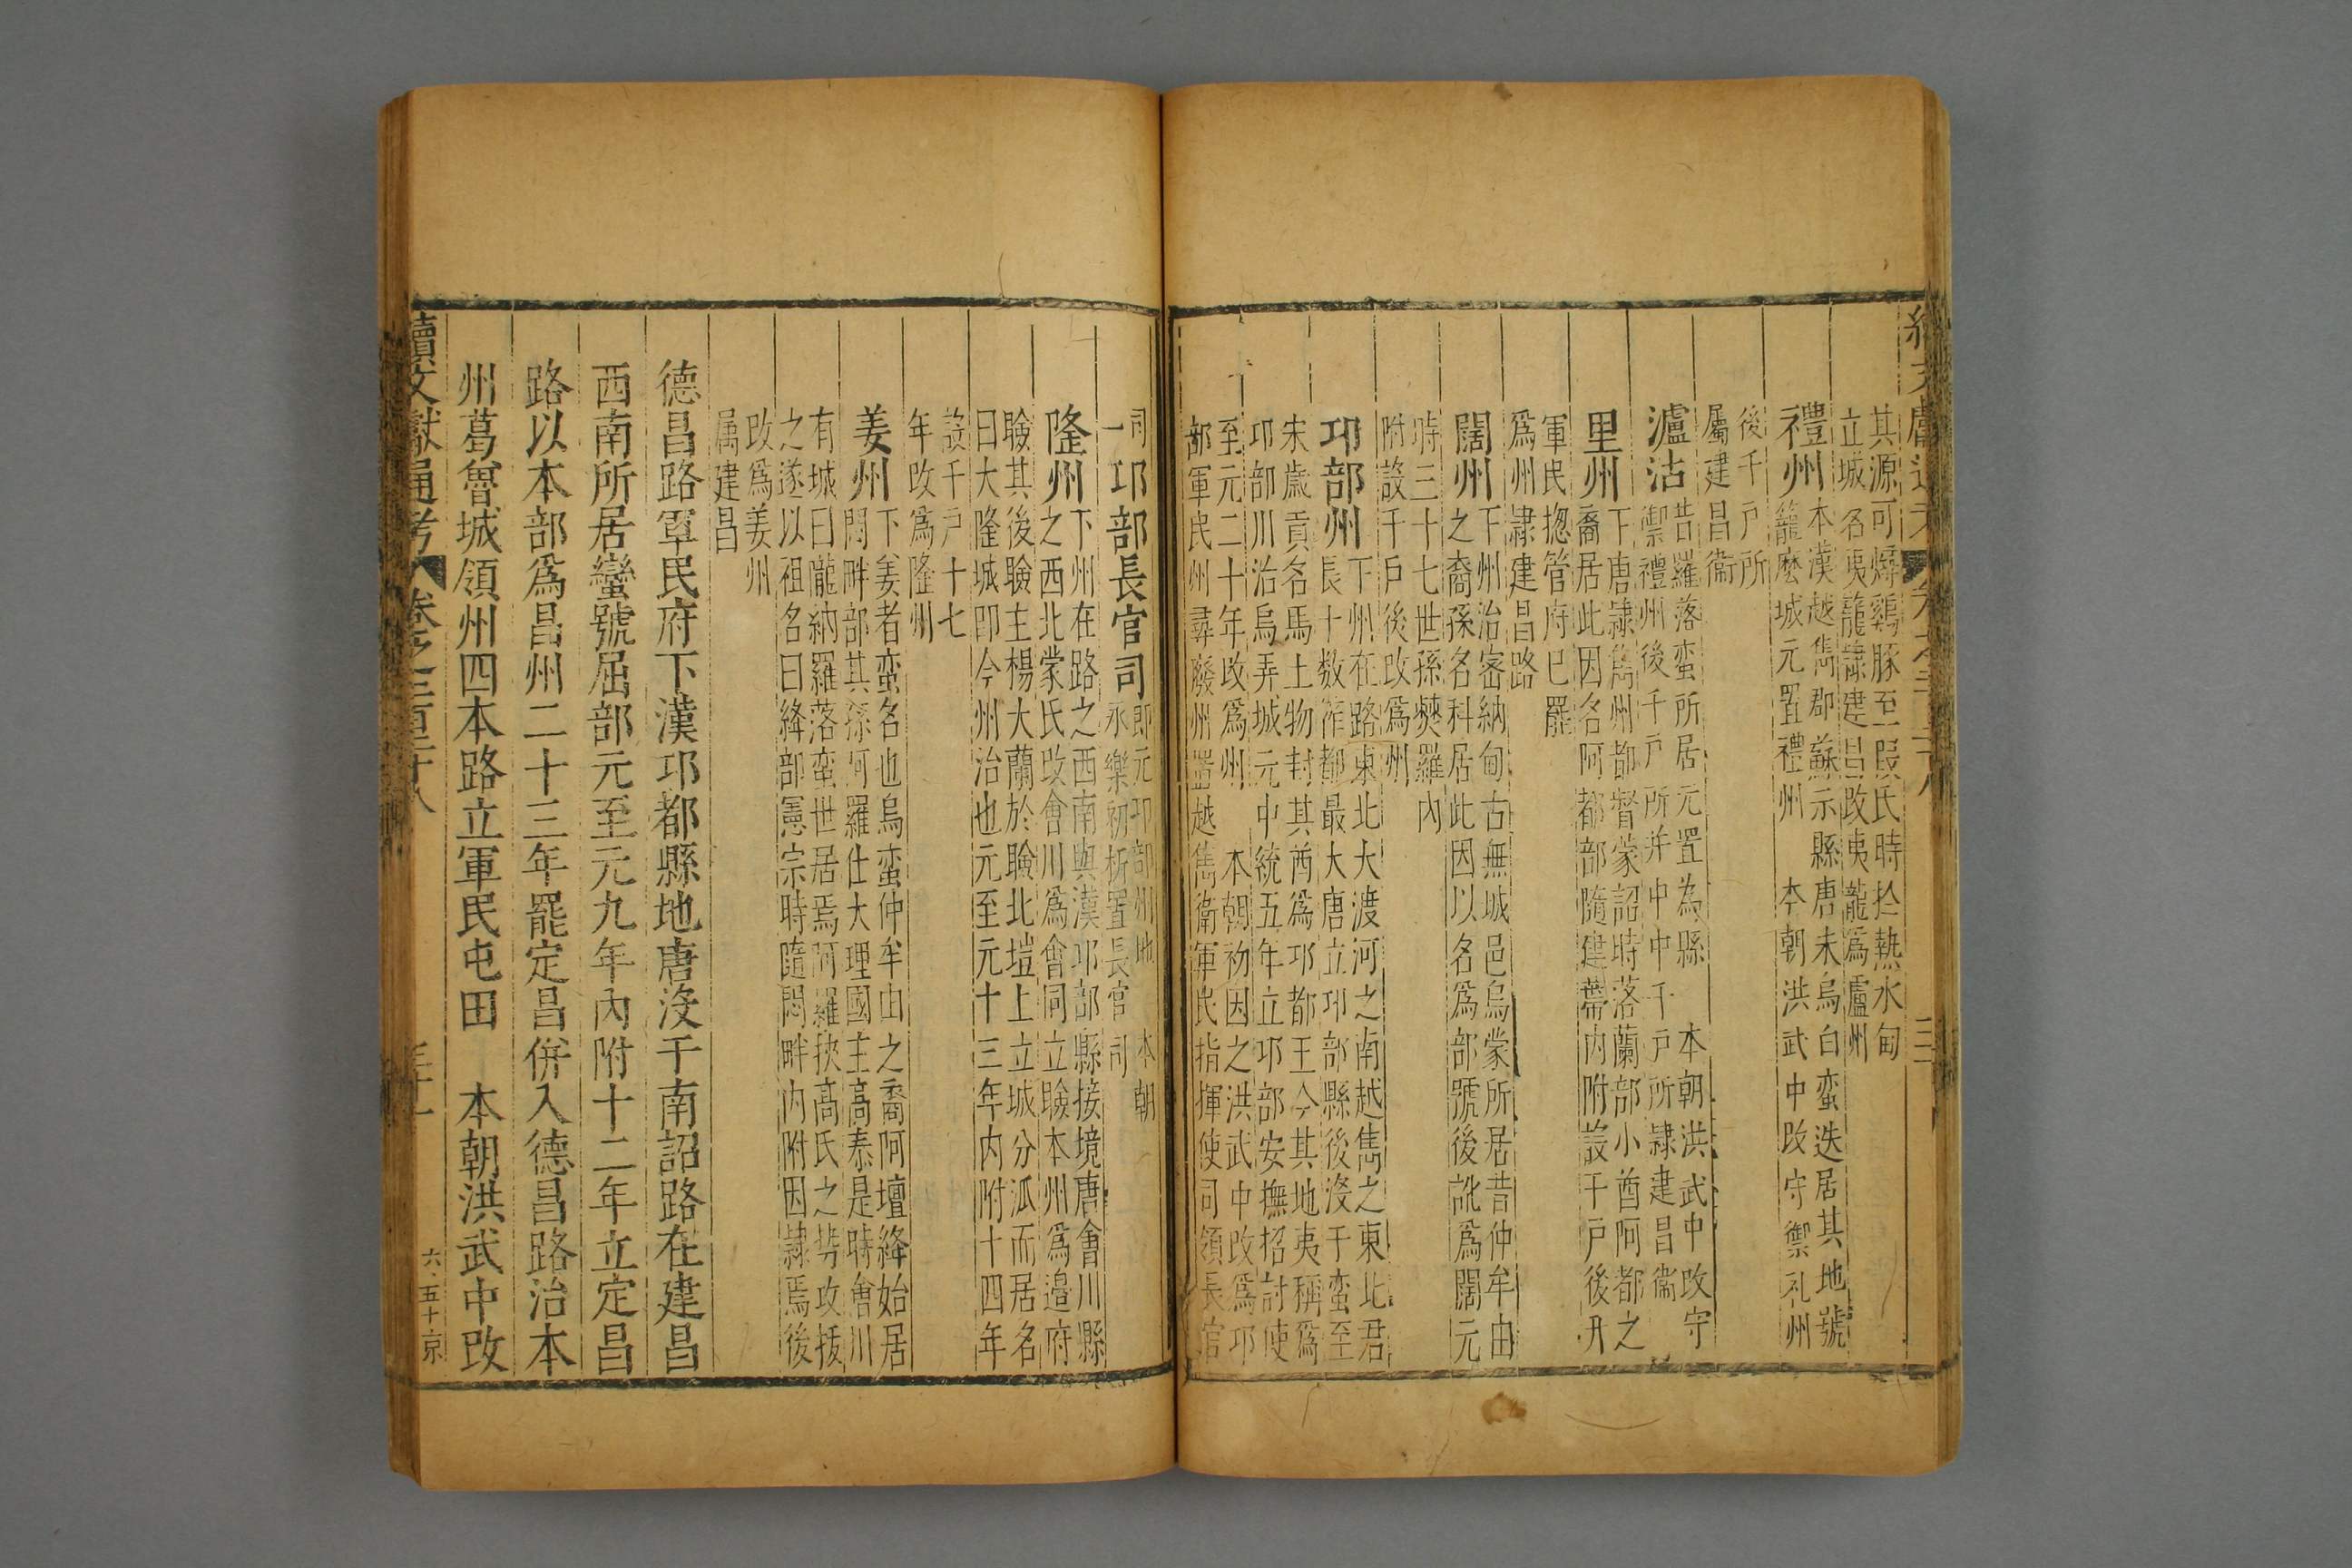 其源可燖鷄豚至叚氏時於熱水甸
立城名夷龍隷建昌改夷龍爲瀘州
禮州本漢越巂郡蘇示縣唐末烏白蛮迭居其地號
籠麽城元置禮州 本朝洪武中改守禦礼州
後千户所
屬建昌衞
瀘沽昔羅落蛮所居元置為縣 本朝洪武中改守
禦禮州後千戸所并中中千戸所隷建昌衞
里州下唐隷巂州都督蒙詔時落蘭部小酋阿都之
裔居此因名阿都部隨建蒂内附設千戸後升
軍民揔管府已罷
爲州隷建昌路
闊州下州治宻納甸古無城邑烏蒙所居昔仲牟由
之裔孫名科居此因以名爲部號後訛爲闊元
時三十七世孫僰羅内
附設千戸後改爲州
邛部州下州在路東北大渡河之南越雋之東北君
長十数筰都最大唐立邛部縣後没于蛮至
宋歲貢名馬土物封其酋爲邛都王今其地夷稱爲
邛部川治烏弄城元中統五年立邛部安撫招討使
至元二十年改爲州 本朝初因之洪武中改爲邛
部軍民州尋廢州置越雋衛軍民指揮使司領長官
司
一邛部長官司即元邛部州地 本朝
永樂初析置長官司
隆州下州在路之西南與漢邛部縣接境唐會川縣
之西北蒙氏改會川爲會同立瞼本州爲邉府
瞼其後瞼主楊大蘭於瞼北塏上立城分派而居名
曰大隆城即今州治也元至元十三年内附十四年
設千戸十七
年改爲隆州
姜州下姜者蛮名也烏蛮仲牟由之裔阿壇絳始居
閟畔部其孫阿羅仕大理國主高泰是時會川
有城曰龎納羅落蛮世居焉阿羅挾高氏之势攻拔
之遂以祖名曰絳部憲宗時隨閟畔内附因隷焉後
改爲姜州
属建昌
德昌路軍民府下漢邛都縣地唐没于南詔路在建昌
西南所居蠻號屈部元至元九年內附十二年立定昌
路以本部爲昌州二十三年罷定昌併入德昌路治本
州葛魯城領州四本路立軍民屯田 本朝洪武中改
續文獻通考 卷之二百三十八 六·五十京